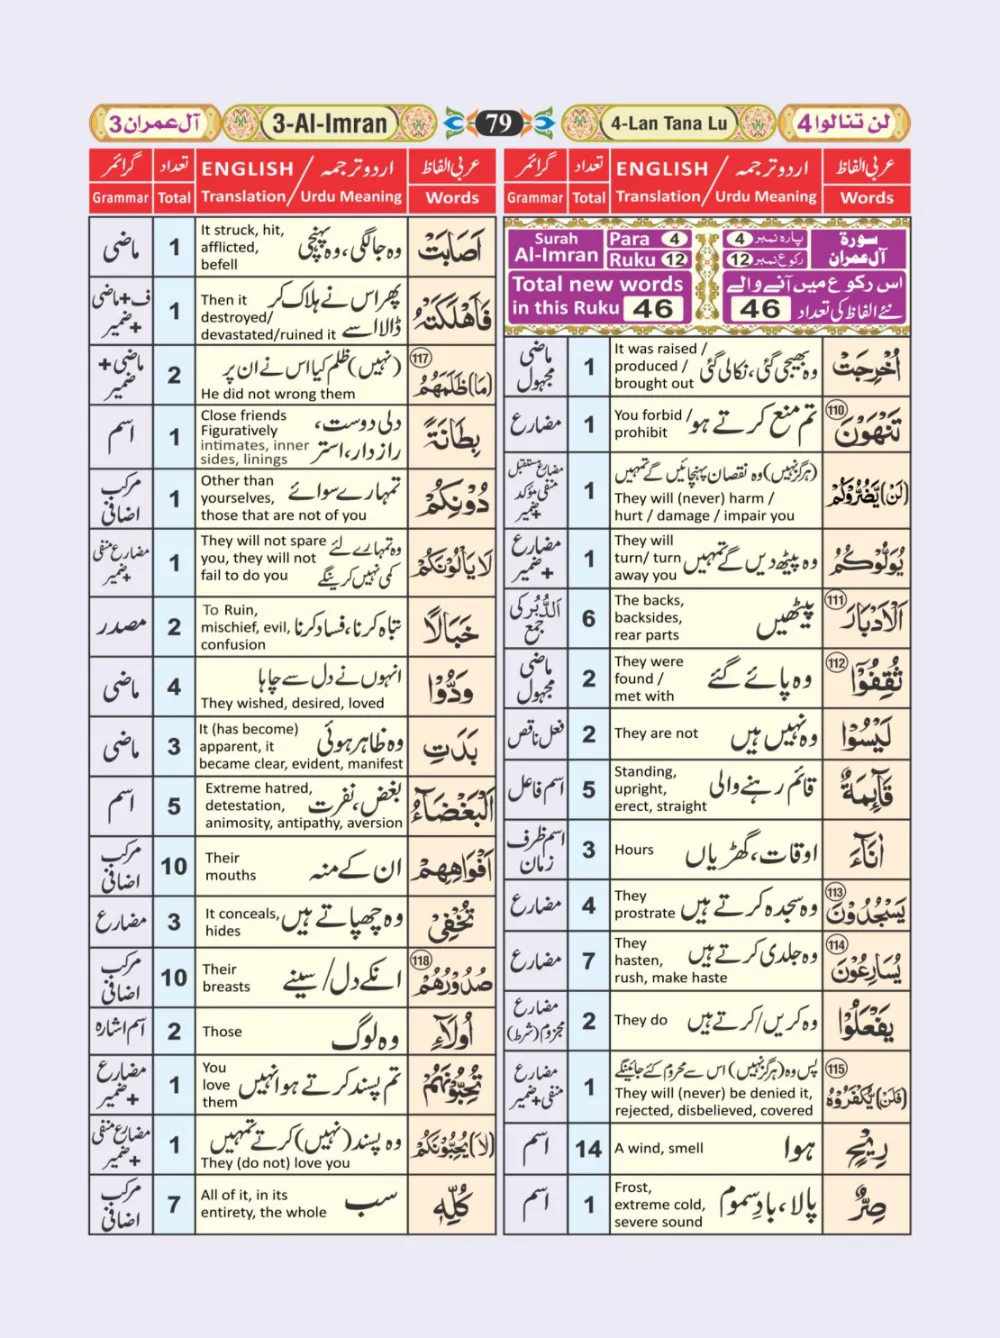 لن تنالوا 4
4-Lan Tana Lu
79
3-Al-Imran
آل عمران 3
عربی الفاظ اردو ترجمہ / ENGLISH تعداد گرائمر
Words Urdu Meaning / Translation Total Grammar
سورة آل عمران
پارہ نمبر 4
رکوع نمبر 12
Para 4
Ruku 12
Surah Al-Imran
اس رکوع میں آنے والے
نئے الفاظ کی تعداد 46
Total new words
in this Ruku 46
اُخْرِجَتْ وہ بھیجی گئی، نکالی گئی It was raised / produced / brought out 1 ماضی مجہول
110 تَنْهَوْنَ تم منع کرتے ہو You forbid / prohibit 1 مضارع
(لَنْ) يَّضُرُّوْكُمْ (ہرگز نہیں) وہ نقصان پہنچائیں گے تمہیں They will (never) harm / hurt / damage / impair you 1 مضارع مستقبل منفی مؤکد + ضمیر
يُوَلُّوْكُمْ وہ پیٹھ دیں گے تمہیں They will turn/ turn away you 1 مضارع + ضمیر
111 اَلْاَدْبَارَ پیٹھیں The backs, backsides, rear parts 6 اَلدُّبُر کی جمع
112 ثُقِفُوْٓا وہ پائے گئے They were found / met with 2 ماضی مجہول
لَيْسُوْا وہ نہیں ہیں They are not 2 فعل ناقص
قَآئِمَةٌ قائم رہنے والی Standing, upright, erect, straight 5 اسم فاعل
اٰنَآءَ اوقات، گھڑیاں Hours 3 اسم ظرف زمان
113 يَسْجُدُوْنَ وہ سجدہ کرتے ہیں They prostrate 4 مضارع
114 يُسَارِعُوْنَ وہ جلدی کرتے ہیں They hasten, rush, make haste 7 مضارع
يَفْعَلُوْا وہ کریں/ کرتے ہیں They do 2 مضارع مجزوم (شرط)
115 (فَلَنْ) يُّكْفَرُوْهُ پس وہ (ہرگز نہیں) اس سے محروم کئے جائینگے They will (never) be denied it, rejected, disbelieved, covered 1 مضارع منفی + ضمیر
رِيْحٍ ہوا A wind, smell 14 اسم
صِرٌّ پالا، بادِ سموم Frost, extreme cold, severe sound 1 اسم
عربی الفاظ اردو ترجمہ / ENGLISH تعداد گرائمر
Words Urdu Meaning / Translation Total Grammar
اَصَابَتْ وہ جا لگی، وہ پہنچی It struck, hit, afflicted, befell 1 ماضی
فَاَهْلَكَتْهُ پھر اس نے ہلاک کر ڈالا اسے Then it destroyed/ devastated/ruined it 1 ف + ماضی + ضمیر
117 (مَا) ظَلَمَهُمُ (نہیں) ظلم کیا اس نے ان پر He did not wrong them 2 ماضی + ضمیر
بِطَانَةً دلی دوست، رازدار، استر Close friends Figuratively intimates, inner sides, linings 1 اسم
دُوْنِكُمْ تمہارے سوائے Other than yourselves, those that are not of you 1 مرکب اضافی
لَا يَاْلُوْنَكُمْ وہ تمہارے لئے کمی نہیں کرینگے They will not spare you, they will not fail to do you 1 مضارع منفی + ضمیر
خَبَالًا تباہ کرنا، فساد کرنا To Ruin, mischief, evil, confusion 2 مصدر
وَدُّوْا انہوں نے دل سے چاہا They wished, desired, loved 4 ماضی
بَدَتِ وہ ظاہر ہوئی It (has become) apparent, it became clear, evident, manifest 3 ماضی
اَلْبَغْضَآءُ بغض، نفرت Extreme hatred, detestation, animosity, antipathy, aversion 5 اسم
اَفْوَاهِهِمْ ان کے منہ Their mouths 10 مرکب اضافی
تُخْفِيْ وہ چھپاتے ہیں It conceals, hides 3 مضارع
118 صُدُوْرُهُمْ انکے دل/ سینے Their breasts 10 مرکب اضافی
اُولَآءِ وہ لوگ Those 2 اسم اشارہ
تُحِبُّوْنَهُمْ تم پسند کرتے ہو انہیں You love them 1 مضارع + ضمیر
(لَا) يُحِبُّوْنَكُمْ وہ پسند (نہیں) کرتے تمہیں They (do not) love you 1 مضارع منفی + ضمیر
كُلِّهٖ سب All of it, in its entirety, the whole 7 مرکب اضافی